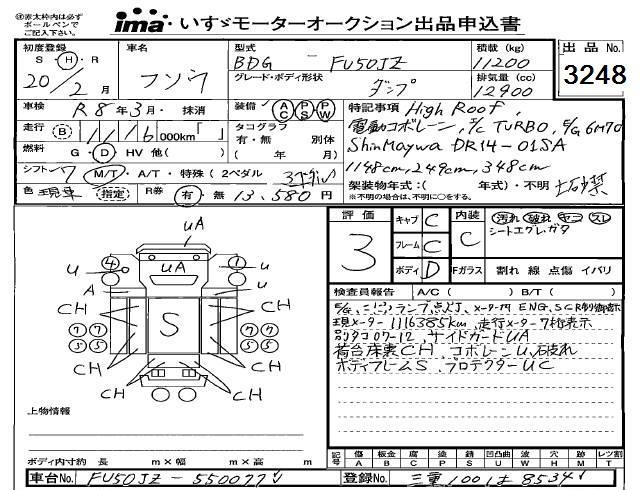 赤太枠内は必ず
ボールペンで
ご記入下さい。
ima いすゞモーターオークション出品申込書
初度登録 車名 型式 積載 (kg) 出品 No.
S・H・R BDG - FU50JZ 11200
20/2月 フソウ グレード・ボディ形状 ダンプ 排気量 (cc) 12900 3248
車検 R8年3月・抹消 装備 AC PS PW 特記事項 High Roof,
走行 B 111万6 000km「 」 タコグラフ 有・無 別体 電動コボレーン, I/C TURBO, E/G 6M70
燃料 G・D・HV 他( ) ( 年 月) ShinMaywa DR14-01SA
シフト 7 M/T・A/T・特殊 (2ペダル 1148cm, 249cm, 348cm
色 現車 指定 R券 有・無 13,580円 架装物年式:( 年式)・不明 土砂禁
※不明の場合は、不明に○をする。
評価 キャブ C 内装 汚れ 破れ ヤコ スレ
3 フレーム C C シートエグレ,ガタ
ボディ D Fガラス 割れ 線 点傷 イバリ
検査員報告 A/C ( ) B/T ( )
ランプ点灯, メーター内 ENG, SCR制御表示
現メーター1116385km, 走行メーター7桁表示
別タコ07-12, サイドガードUA
荷台床裏CH, コボレーンU, 破れ
ボディフレームS, プロテクターUC
UA
④ U UA ① U
U U
CH CH
CH S CH
⑦⑦ ⑦⑦
⑤⑤ ⑦⑤
CH CH
上物情報
ボディ内寸約 長 m×幅 m×高 m
記号 傷 A 板金 B 腐 C 塗 P 錆 S 凹凸曲 U 波 W 穴 H 跡 M レツ割 T
車台No. FU50JZ-550077 登録No. 三重100は8534